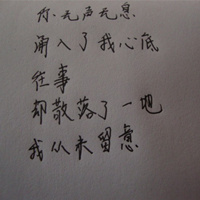 你无声无息
涌入了我心底
往事
却散落了一地
我从未留意